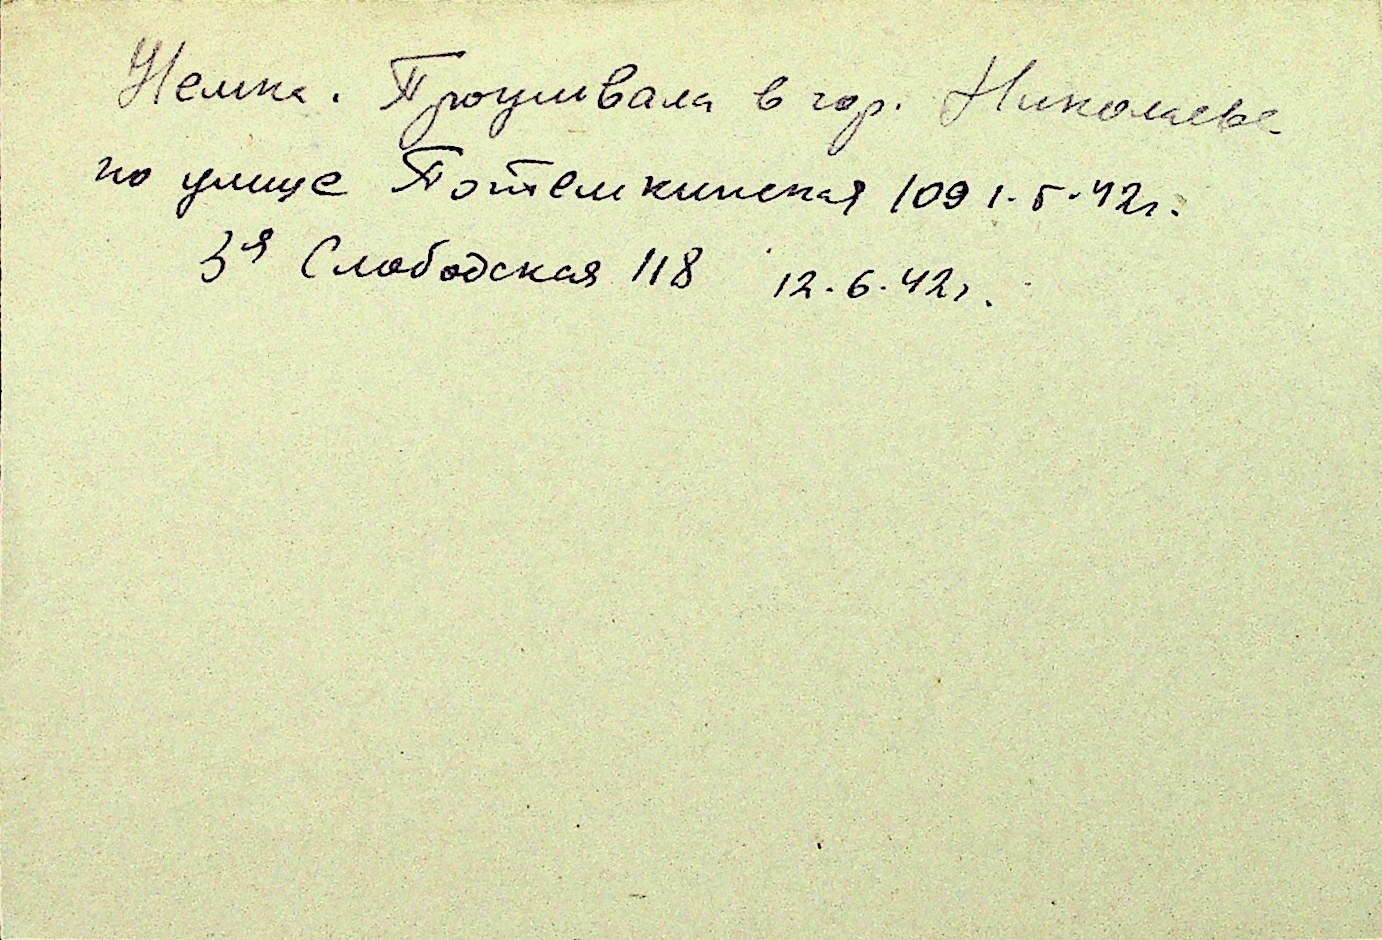 Немка. Проживала в гор. Николаеве
по улице Потемкинская 109 1.5.42г.
3я Слободская 118 12.6.42г.